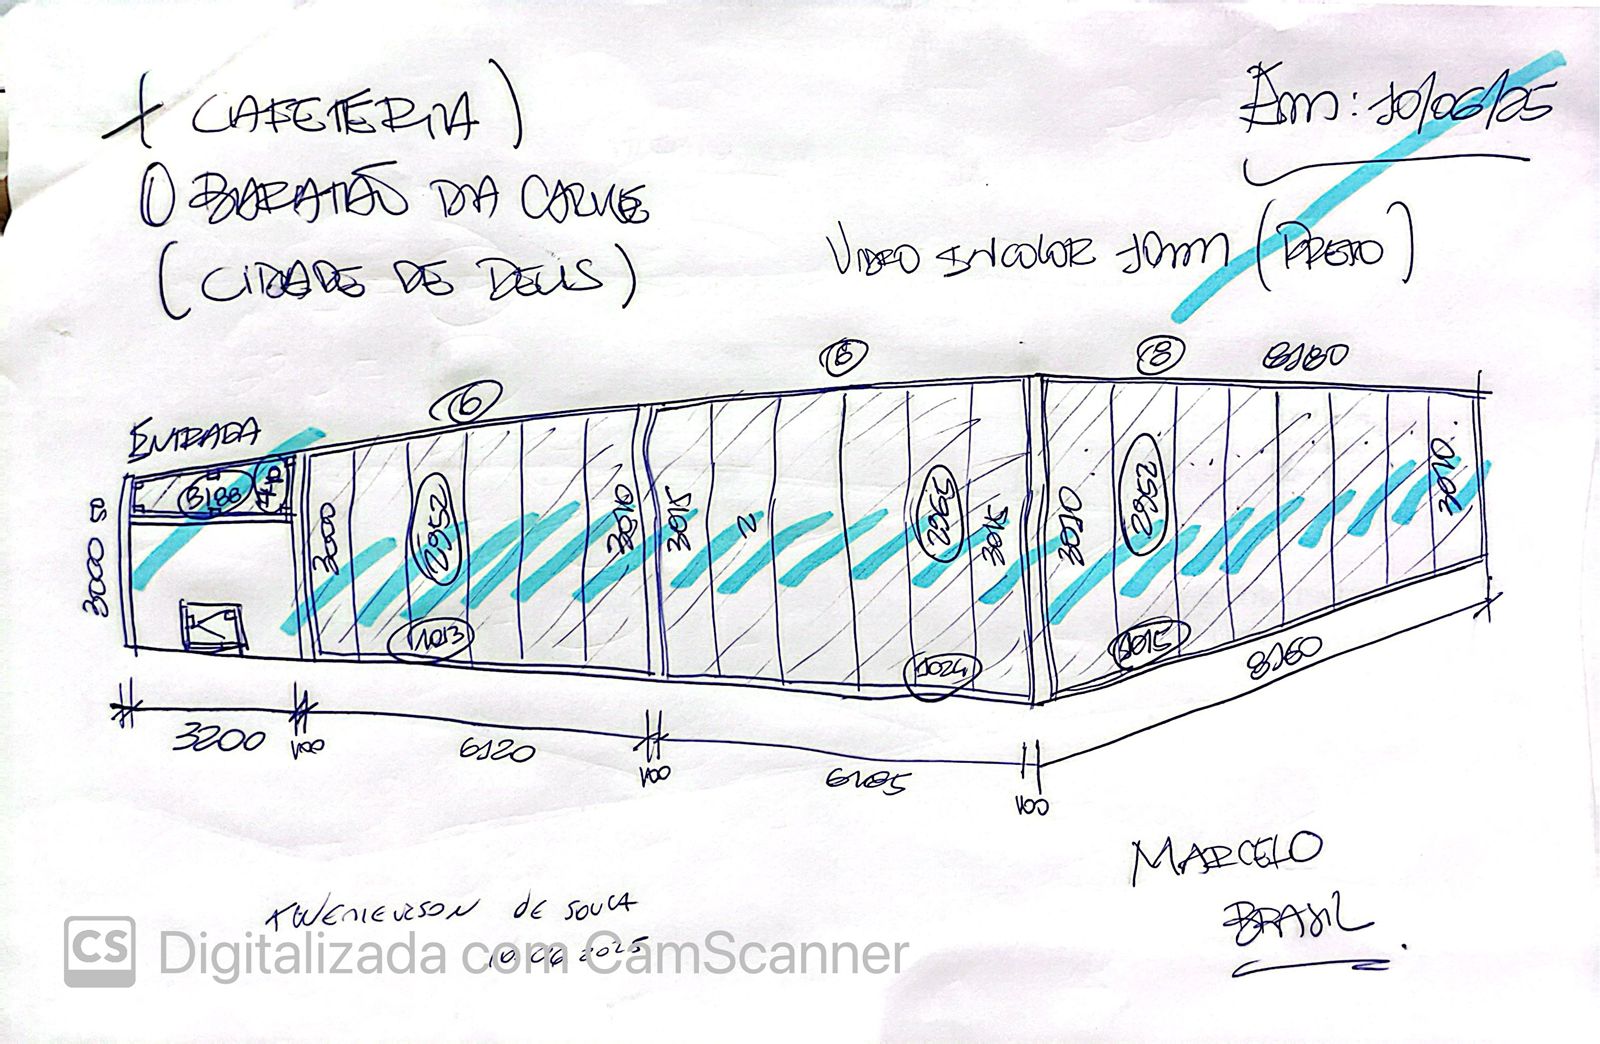 + CAFETERIA)
O BARATÃO DA CARNE
(CIDADE DE DEUS)
Am: 10/06/25
VIDRO INCOLOR 10mm (PRETO)
6
8
8180
ENTRADA
3188
410
3000
3000
2952
3010
3015
2
2955
3015
3010
2952
3010
1013
1024
1015
3200
100
6120
100
6185
100
8160
MARCELO
BRASIL
DE SOUZA
10 06 2025
CS Digitalizada com CamScanner